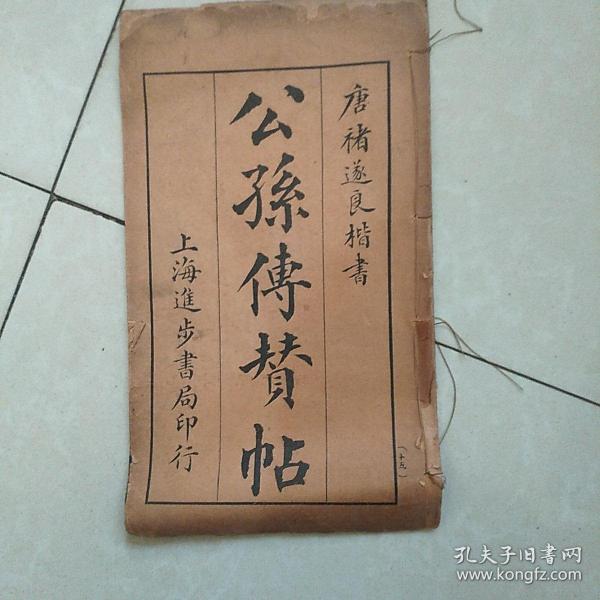 唐褚遂良楷書
公孫傳贊帖
上海進步書局印行
（十五）
孔夫子旧書网
www.kongfz.com